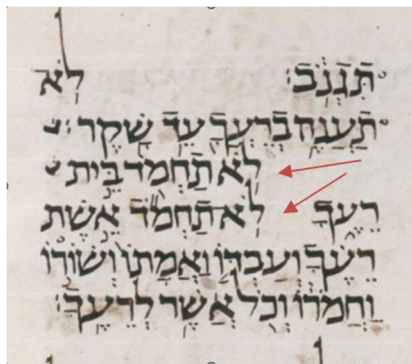 תִּגְנֹב׃ לֹא
תַעֲנֶה בְרֵעֲךָ עֵד שָׁקֶר׃
לֹא תַחְמֹד בֵּית
רֵעֶךָ לֹא תַחְמֹד אֵשֶׁת
רֵעֶךָ וְעַבְדּוֹ וַאֲמָתוֹ וְשׁוֹרוֹ
וַחֲמֹרוֹ וְכֹל אֲשֶׁר לְרֵעֶךָ׃